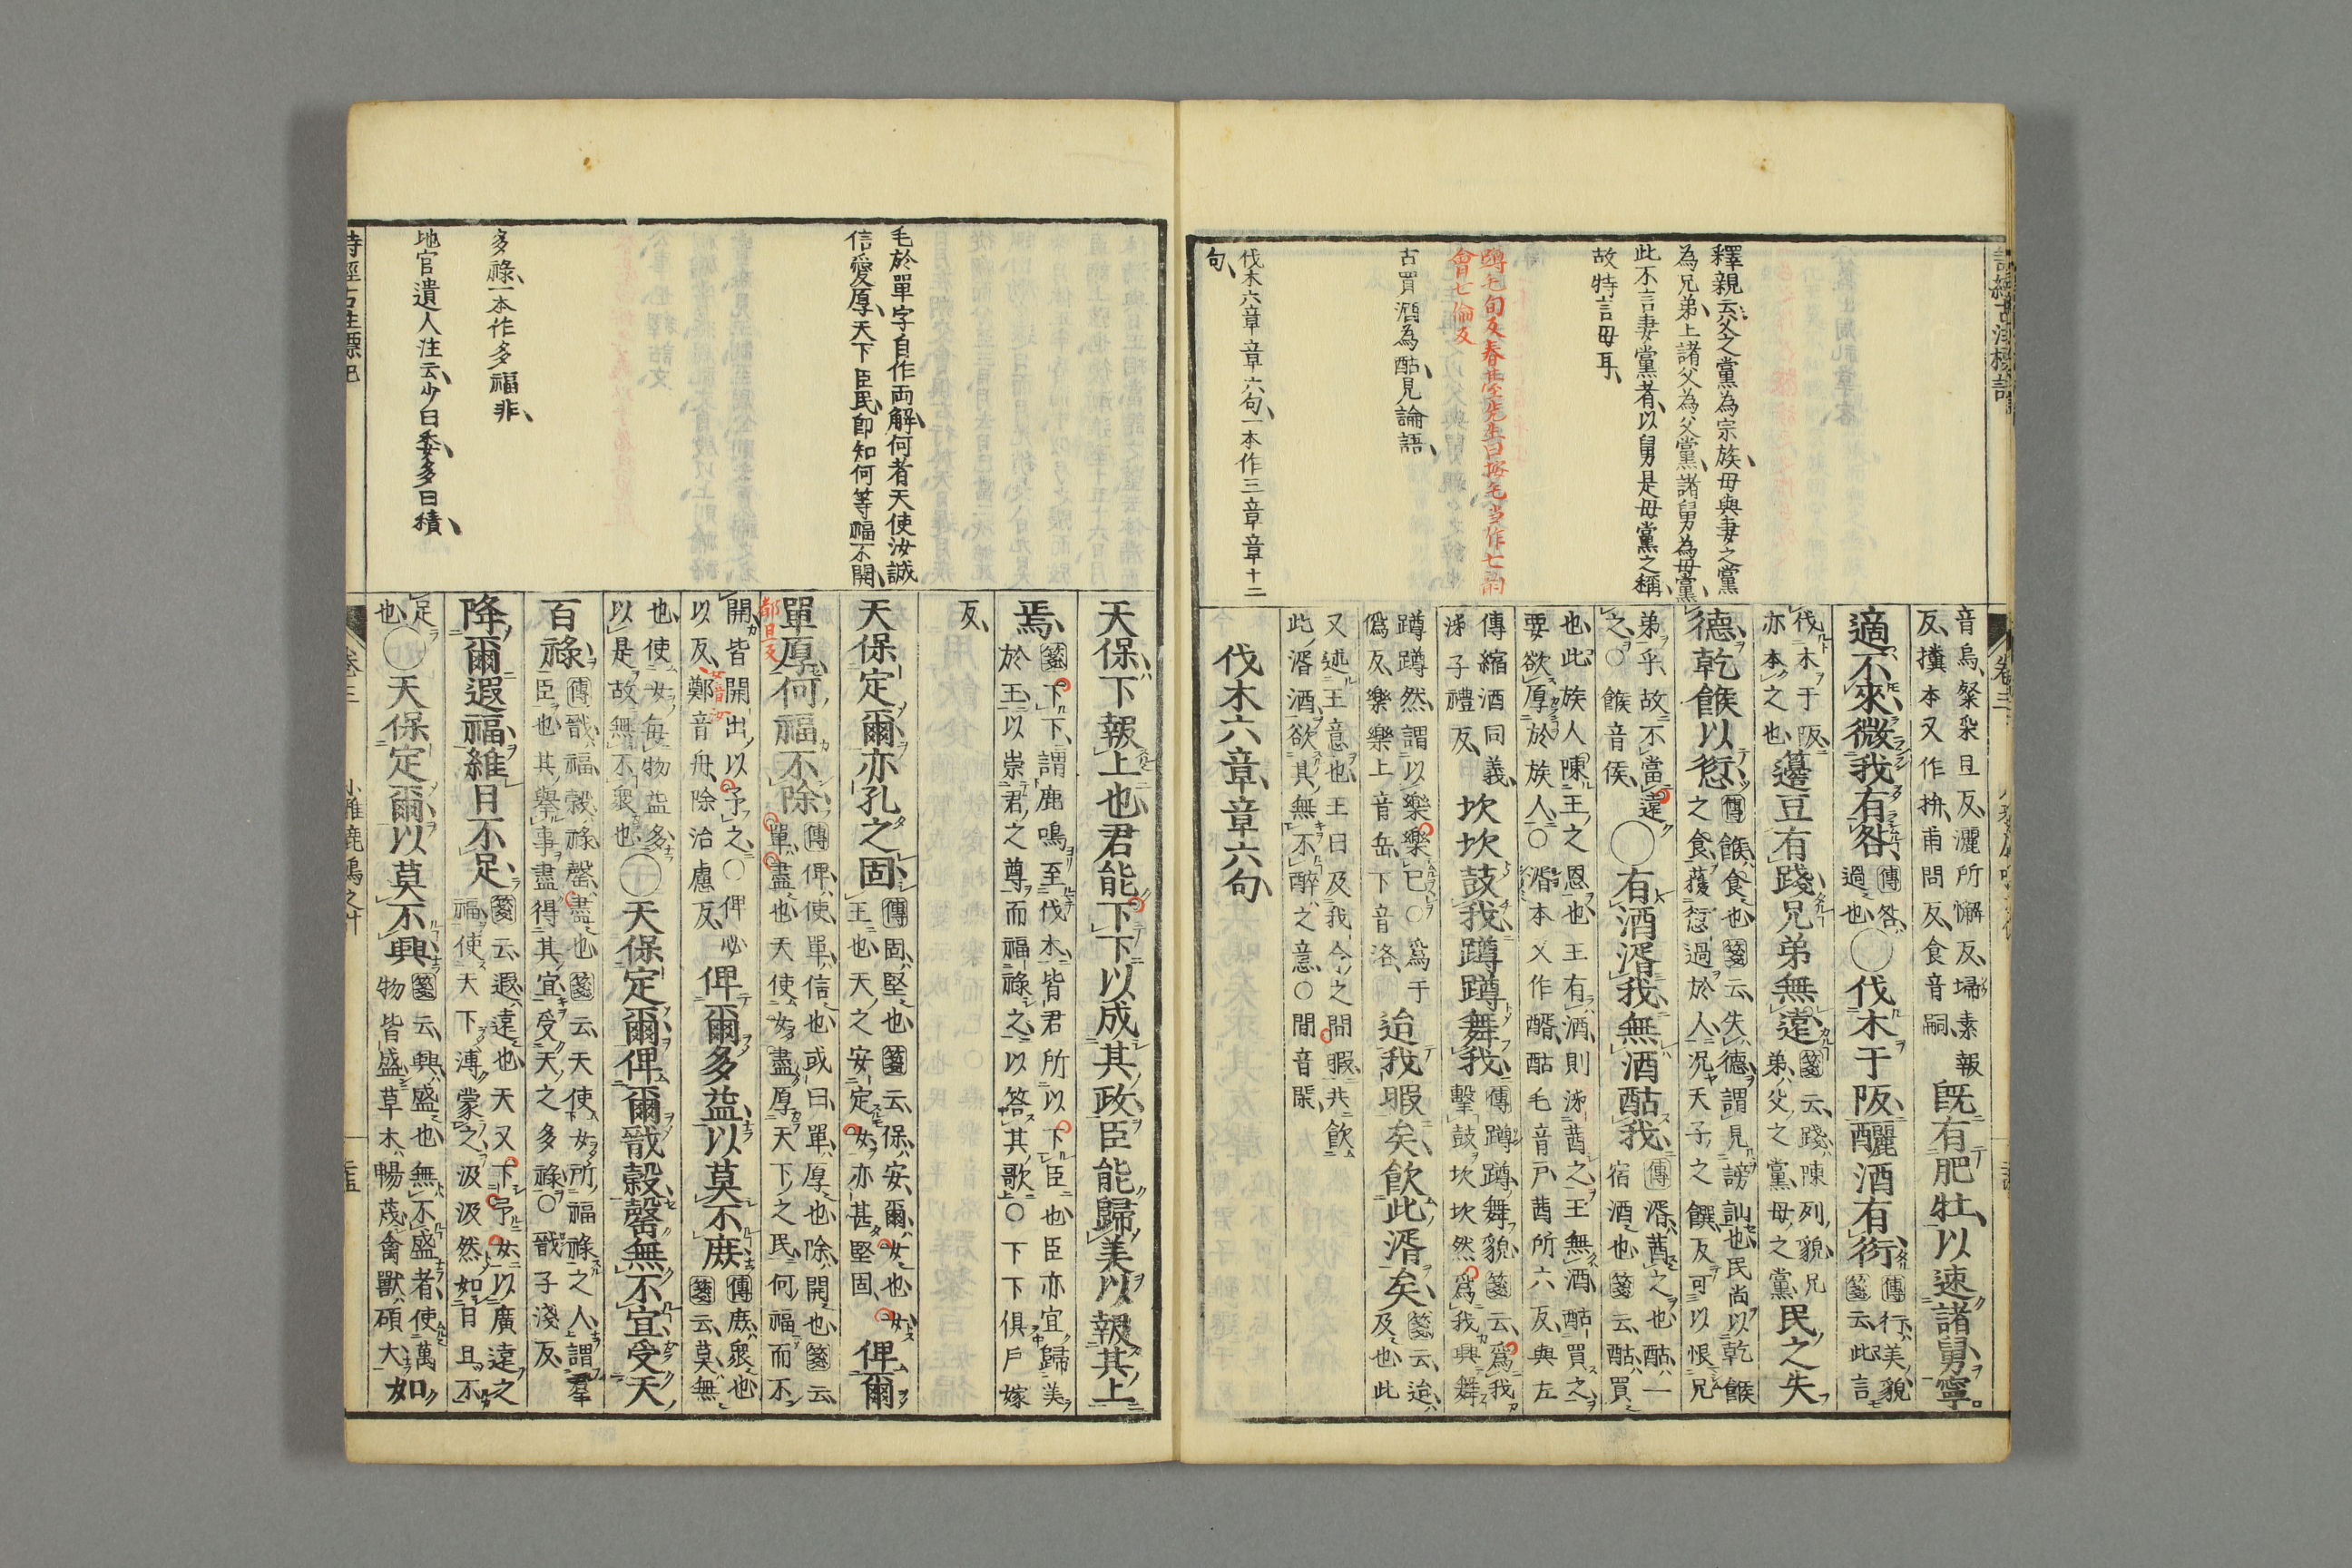 釋親云父之黨為宗族母與妻之黨
為兄弟上諸父為父黨諸舅為母黨
此不言妻黨者以舅是母黨之稱
故特言母耳
會七倫反
古買酒為酤見論語
伐木六章章六句一本作三章章十二
句
音烏粲粲旦反灑所懈反埽素報
反攓本又作拚甫問反食音嗣
既有肥牡以速諸舅寧
適不來微我有咎傳咎過也○伐木于阪釃酒有衍傳衍美貌箋云此言
伐木于阪亦本之也籩豆有踐兄弟無遠箋云踐陳列貌兄弟父之黨母之黨民之失
德乾餱以愆傳餱食也箋云失德謂見謗訕也民尚以乾餱
之食獲愆過於人況天子之饌反可以恨兄
弟乎故不當遠之○餱音侯○有酒湑我無酒酤我傳湑莤之也酤一宿酒也箋云酤買
也此族人陳王之恩也王有酒則泲莤之王無酒酤買之
要欲厚於族人○湑本又作醑酤毛音戸莤所六反與左
傳縮酒同義泲子禮反坎坎鼓我蹲蹲舞我傳蹲蹲舞貌箋云爲我擊鼓坎坎然爲我興舞
蹲蹲然謂以樂樂已○爲于僞反樂樂上音岳下音洛迨我暇矣飲此湑矣箋云迨及也此
又述王意也王曰及我今之間暇共飲
此湑酒欲其無不醉之意○間音閑
伐木六章章六句
毛於單字自作両解何者天使汝誠
信愛厚天下臣民即知何等福不開
多祿一本作多福非
地官遺人注云少曰委多曰積
天保下報上也君能下下以成其政臣能歸美以報其上
焉箋下下謂鹿鳴至伐木皆君所以下臣也臣亦宜歸美
於王以崇君之尊而福祿之以答其歌○下下俱戸嫁
反
天保定爾亦孔之固傳固堅也箋云保安爾女也女王也天之安定女亦甚堅固俾爾
單厚何福不除傳俾使單信也或曰單厚也除開也箋云單盡也天使女盡厚天下之民何福而不
都旦反
開皆開出以予之○俾必以反鄭音毋除治慮反俾爾多益以莫不庶傳庶衆也箋云莫無
女音汝
也使女每物益多以是故無不衆也○天保定爾俾爾戩穀罄無不宜受天
百祿傳戩福穀祿罄盡也箋云天使女所福祿之人謂羣
臣也其舉事盡得其宜受天之多祿○戩子淺反
降爾遐福維日不足箋云遐遠也天又下予女以廣遠之
福使天下溥蒙之汲汲然如日且不
足也○天保定爾以莫不興箋云興盛也無不盛者使萬物皆盛草木暢茂禽獸碩大如